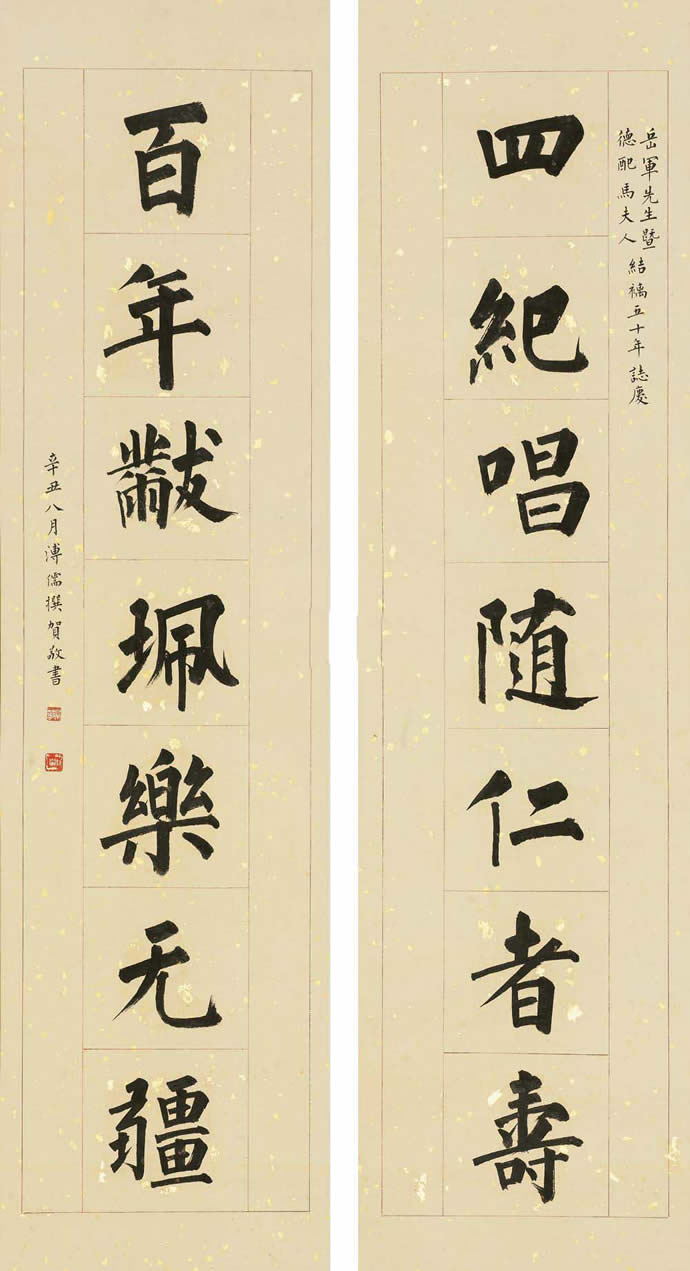 岳軍先生暨
德配馬夫人結褵五十年誌慶
四紀唱随仁者壽
百年黻珮樂无疆
辛丑八月溥儒撰賀敬書